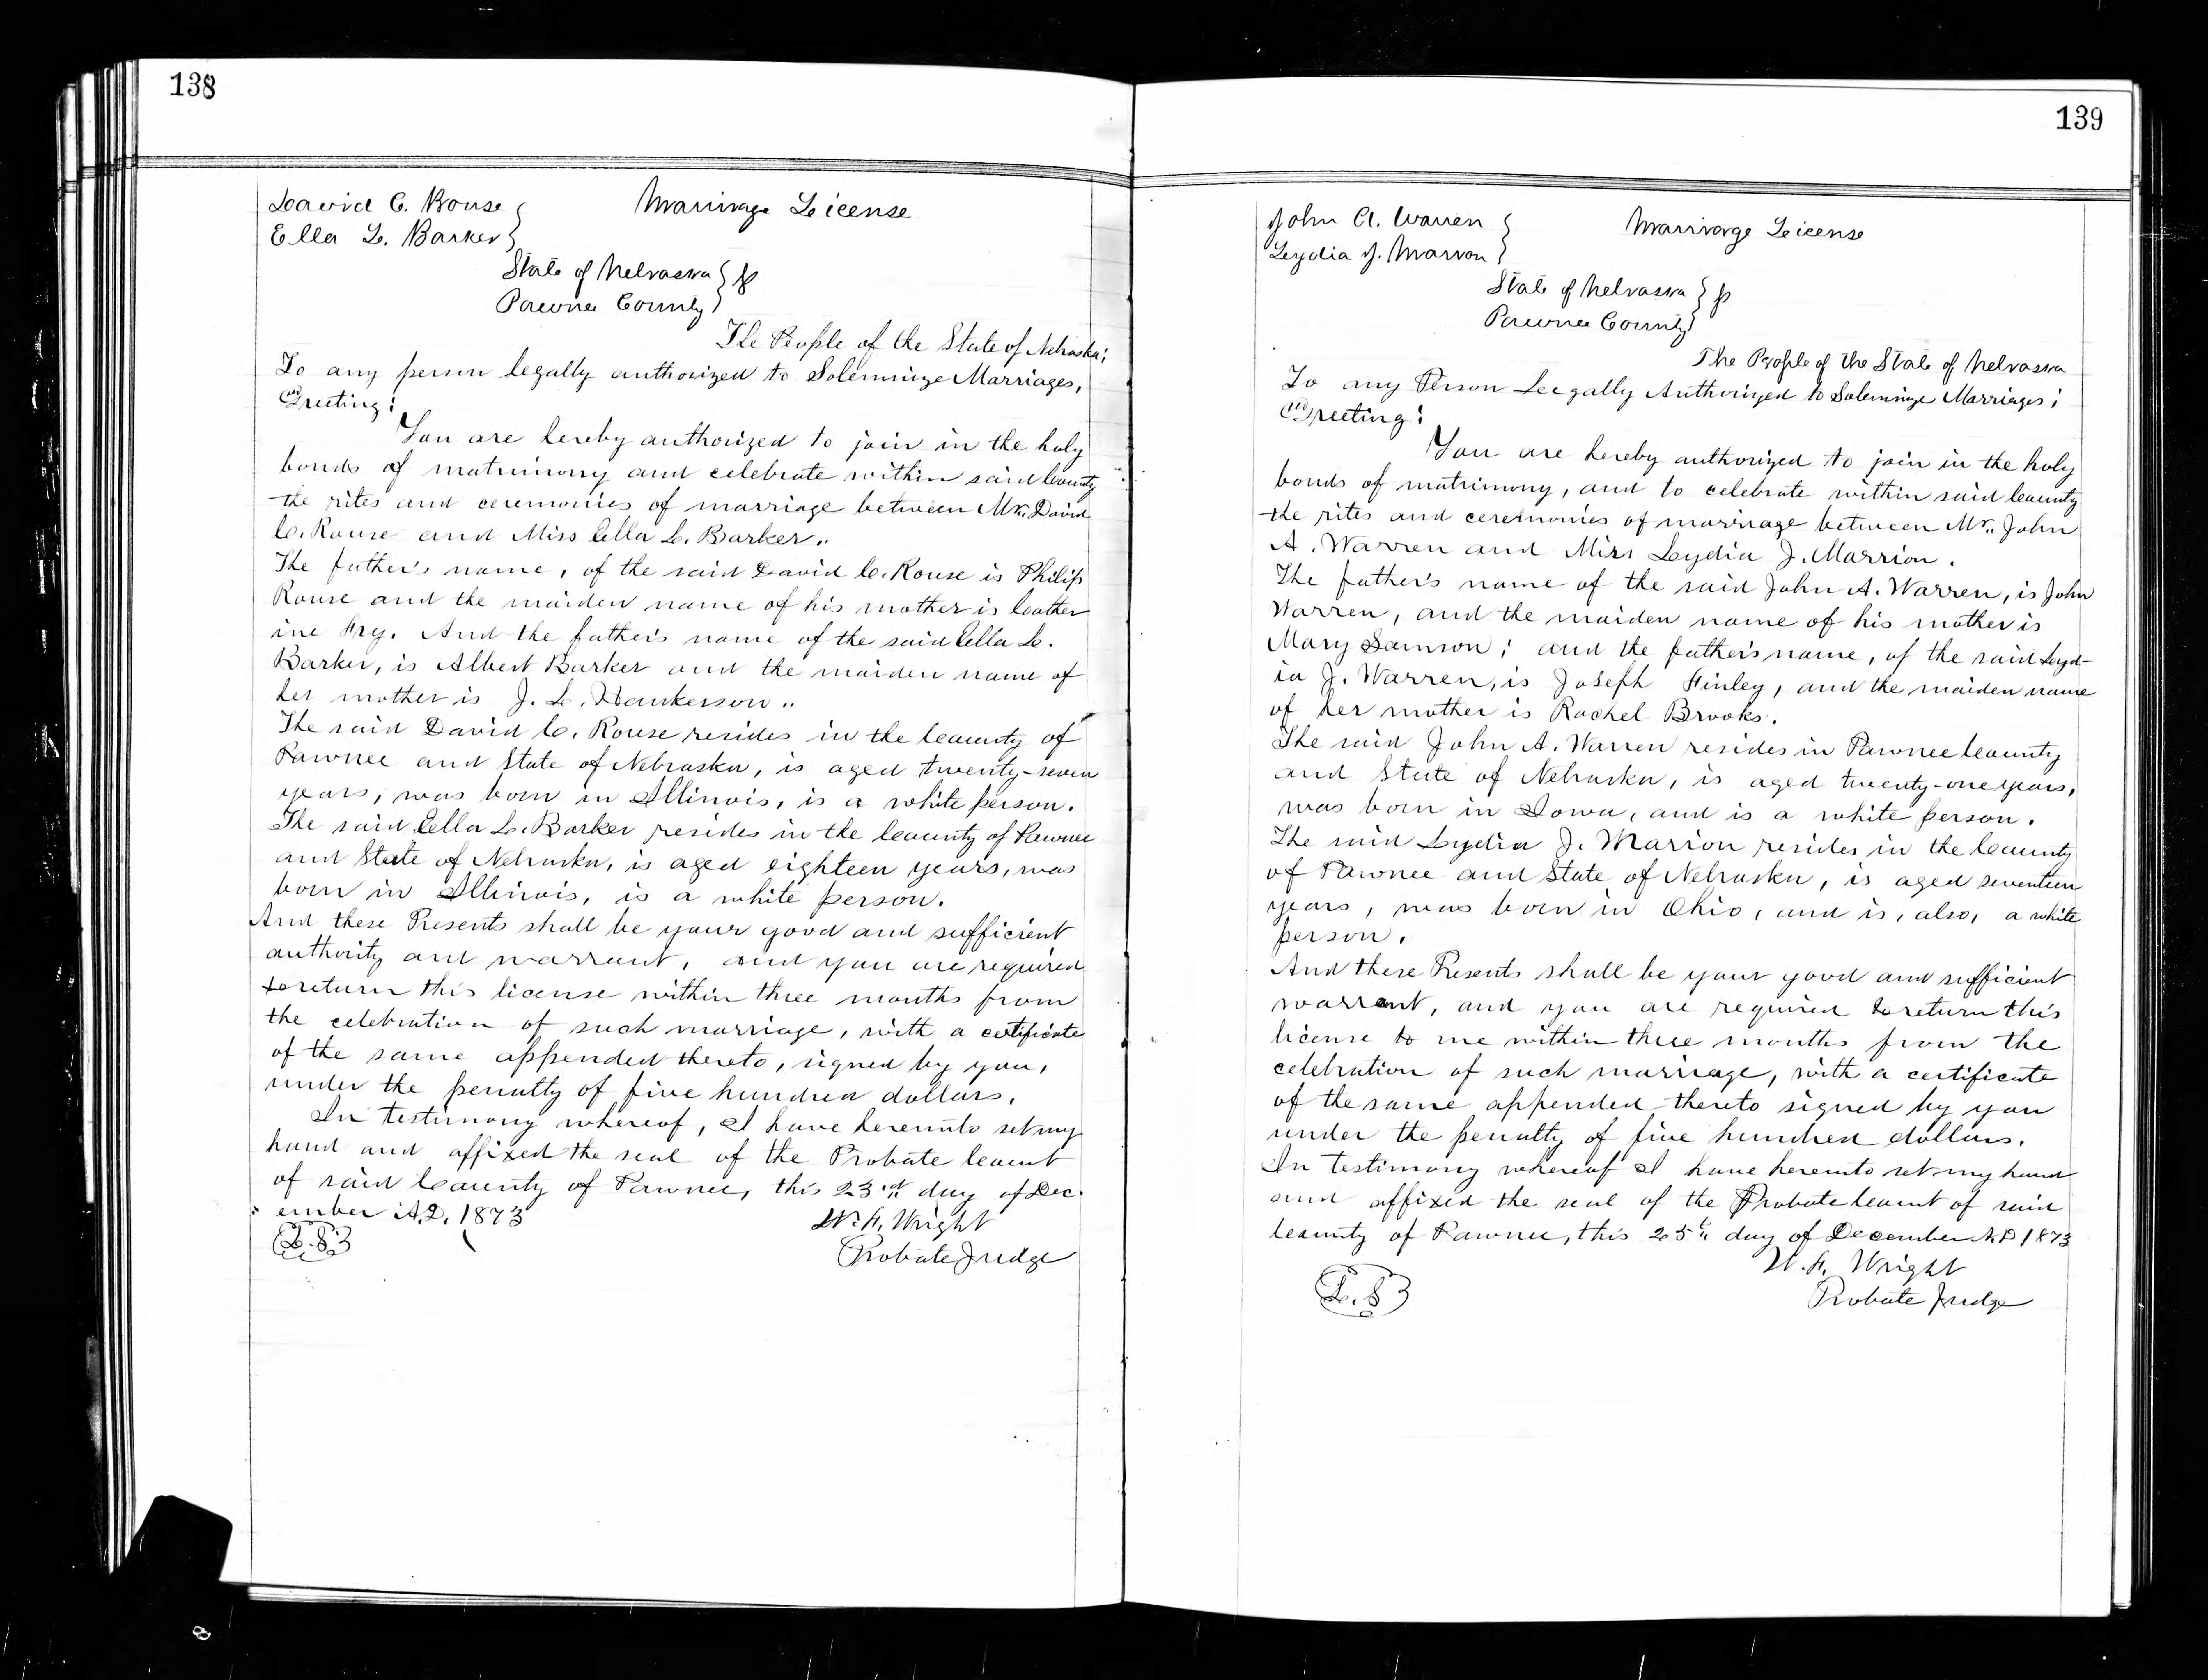 138
David C. Rouse
Ella L. Barker
Marriage License
State of Nebraska } ss
Pawnee County
The People of the State of Nebraska;
To any person legally authorized to Solemnize Marriages,
Greeting:
You are hereby authorized to join in the holy
bonds of matrimony and celebrate within said County
the rites and ceremonies of marriage between Mr. David
C. Rouse and Miss Ella L. Barker.
The father's name, of the said David C. Rouse is Philip
Rouse and the maiden name of his mother is Cather
ine Fry. And the father's name of the said Ella L.
Barker, is Albert Barker and the maiden name of
her mother is J. L. Hankerson.
The said David C. Rouse resides in the County of
Pawnee and State of Nebraska, is aged twenty-seven
years, was born in Illinois, is a white person.
The said Ella L. Barker resides in the County of Pawnee
and State of Nebraska, is aged eighteen years, was
born in Illinois, is a white person.
And these Presents shall be your good and sufficient
authority and warrant, and you are required
to return this license within three months from
the celebration of such marriage, with a certificate
of the same appended thereto, signed by you,
under the penalty of five hundred dollars.
In testimony whereof, I have hereunto set my
hand and affixed the seal of the Probate Court
of said County of Pawnee, this 23rd day of Dec.
ember A.D. 1873
W. F. Wright
L.S.
Probate Judge
139
John A. Warren
Lydia J. Marron
Marriage License
State of Nebraska } ss
Pawnee County
The People of the State of Nebraska
To any Person Legally Authorized to Solemnize Marriages;
Greeting:
You are hereby authorized to join in the holy
bonds of matrimony, and to celebrate within said County
the rites and ceremonies of marriage between Mr. John
A. Warren and Miss Lydia J. Marrion.
The father's name of the said John A. Warren, is John
Warren, and the maiden name of his mother is
Mary Samson; and the father's name, of the said Lyd-
ia J. Warren, is Joseph Finley, and the maiden name
of her mother is Rachel Brooks.
The said John A. Warren resides in Pawnee County
and State of Nebraska, is aged twenty-one years,
was born in Iowa, and is a white person.
The said Lydia J. Marion resides in the County
of Pawnee and State of Nebraska, is aged seventeen
years, was born in Ohio, and is, also, a white
person.
And these Presents shall be your good and sufficient
warrant, and you are required to return this
license to me within three months from the
celebration of such marriage, with a certificate
of the same appended thereto signed by you
under the penalty of five hundred dollars.
In testimony whereof I have hereunto set my hand
and affixed the seal of the Probate Court of said
County of Pawnee, this 25th day of December A.D 1873
W. F. Wright
L.S
Probate Judge